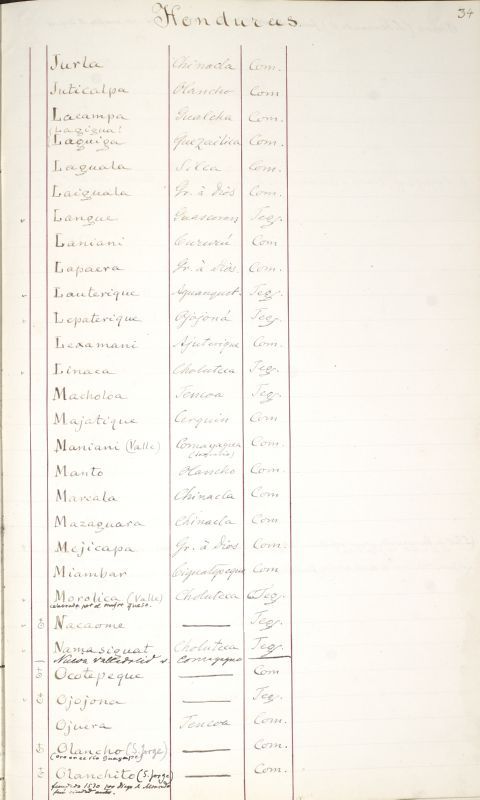 Honduras
34
Jurla Chinacla Com.
Juticalpa Olancho Com
Lacampa Gualcha Com.
(Lagigua?
Laguiga Quezailica Com.
Laguala Silca Com.
Laiguala Gr. à Dios Com.
Langue Guascoran Teg.
Laniani Cururú Com
Lapaera Gr. à Dios. Com.
Lauterique Aguanquet. Teg.
Lepaterique Ojojoná Teg.
Lexamani Ajuterique Com.
Linaca Choluteca Teg.
Macholoa Tencoa Teg.
Majatique Cerquin Com
Maniani (Valle) Comayagua Com.
Manto Olancho Com.
Marcala Chinacla Com
Mazaguara Chinacla Com.
Mejicapa Gr. à Dios Com.
Miambar Ciguatepeque Com
Morolica (Valle) Choluteca Teg.
celebrado por el mejor queso.
Nacaome — Teg.
Namasiguat Choluteca Teg.
Nueva Valladolid v. Comayagua
Ocotepeque — Com
Ojojona — Teg.
Ojuera Tencoa Com.
Olancho (S. Jorge) — Com.
Olanchito (S. Jorge) — Com.
fundado 1530 por Diego de